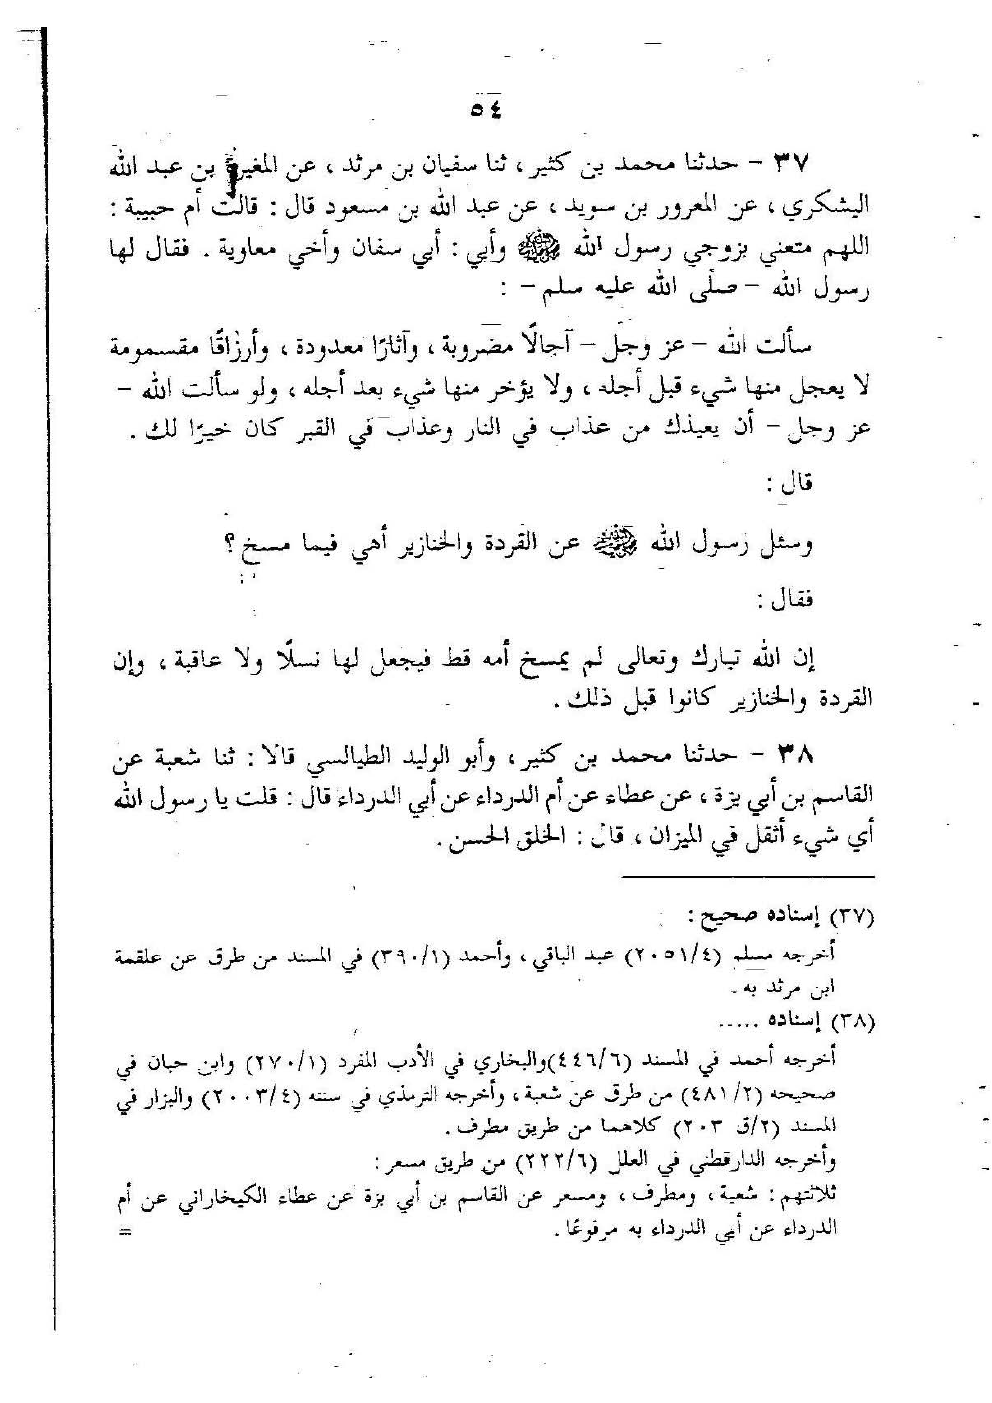 ٥٤
٣٧ - حدثنا محمد بن كثير ، ثنا سفيان بن مرثد ، عن المغيرة بن عبد الله
اليشكري ، عن المعرور بن سويد ، عن عبد الله بن مسعود قال : قالت أم حبيبة :
اللهم متعني بزوجي رسول الله ﷺ وأبي : أبي سفان وأخي معاوية . فقال لها
رسول الله - صلى الله عليه سلم - :
سألت الله - عز وجل - آجالًا مضروبة ، وآثارًا معدودة ، وأرزاقًا مقسمومة
لا يعجل منها شيء قبل أجله ، ولا يؤخر منها شيء بعد أجله ، ولو سألت الله -
عز وجل - أن يعيذك من عذاب في النار وعذاب في القبر كان خيرًا لك .
قال :
وسئل رسول الله ﷺ عن القردة والخنازير أهي فيما مسخ ؟
فقال :
إن الله تبارك وتعالى لم يمسخ أمه قط فيجعل لها نسلًا ولا عاقبة ، وإن
القردة والخنازير كانوا قبل ذلك .
٣٨ - حدثنا محمد بن كثير ، وأبو الوليد الطيالسي قالا : ثنا شعبة عن
القاسم بن أبي بزة ، عن عطاء عن أم الدرداء عن أبي الدرداء قال : قلت يا رسول الله
أي شيء أثقل في الميزان ، قال : الخلق الحسن .
(٣٧) إسناده صحيح :
أخرجه مسلم (٢٠٥١/٤) عبد الباقي ، وأحمد (٣٩٠/١) في المسند من طرق عن علقمة
ابن مرثد به .
(٣٨) إسناده .....
أخرجه أحمد في المسند (٤٤٦/٦) والبخاري في الأدب المفرد (٢٧٠/١) وابن حبان في
صحيحه (٤٨١/٢) من طرق عن شعبة ، وأخرجه الترمذي في سننه (٢٠٠٣/٤) والبزار في
المسند (٢/ق ٢٠٣) كلاهما من طريق مطرف .
وأخرجه الدارقطني في العلل (٢٢٢/٦) من طريق مسعر :
ثلاثتهم : شعبة ، ومطرف ، ومسعر عن القاسم بن أبي بزة عن عطاء الكيخاراني عن أم
الدرداء عن أبي الدرداء به مرفوعًا . =